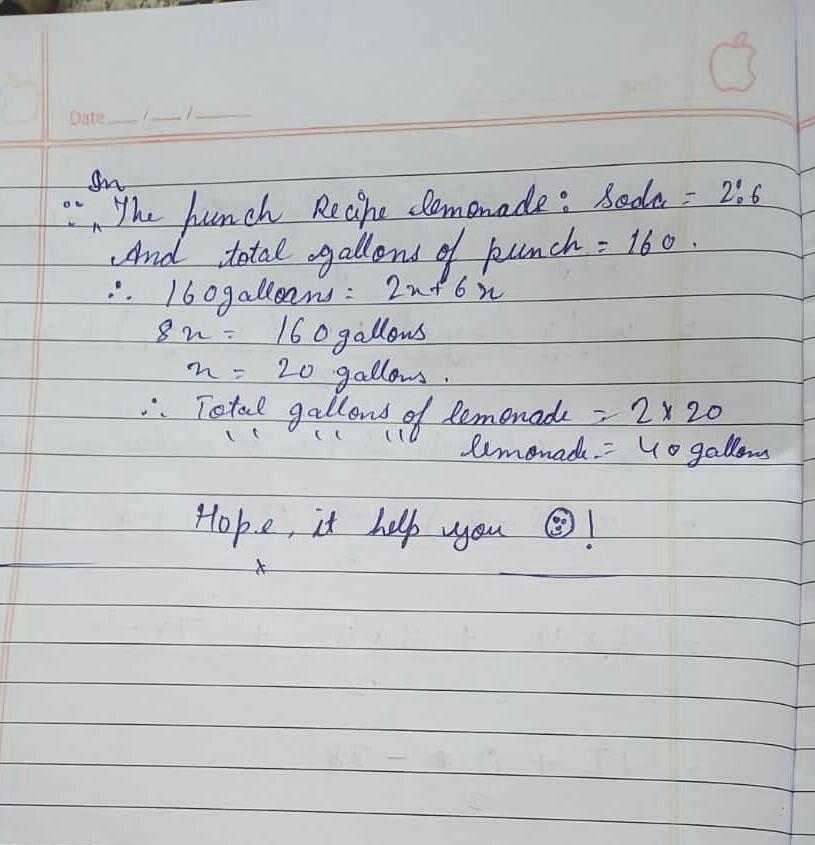 Date __/__/____
In
∵ ‸ The punch Recipe lemonade : Soda = 2:6
And total gallons of punch = 160.
∴ 160 galloens = 2x + 6x
8x = 160 gallons
x = 20 gallons.
∴ Total gallons of lemonade = 2 x 20
" " " lemonade = 40 gallons
Hope, it help you ☺!
x